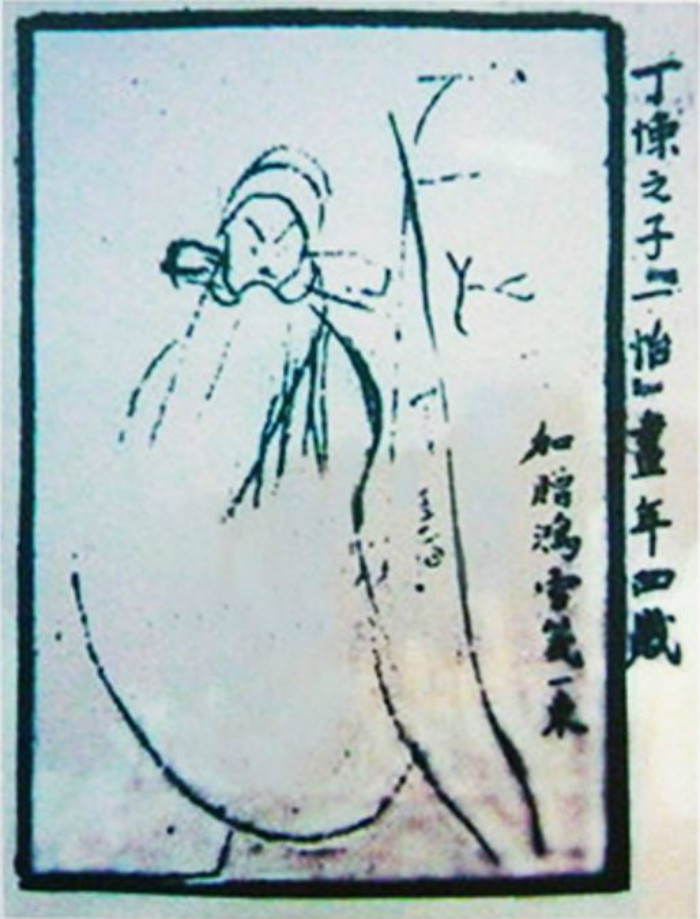 丁悚之子『一怡』畫年四歲
加贈鴻雪箋一束
丁